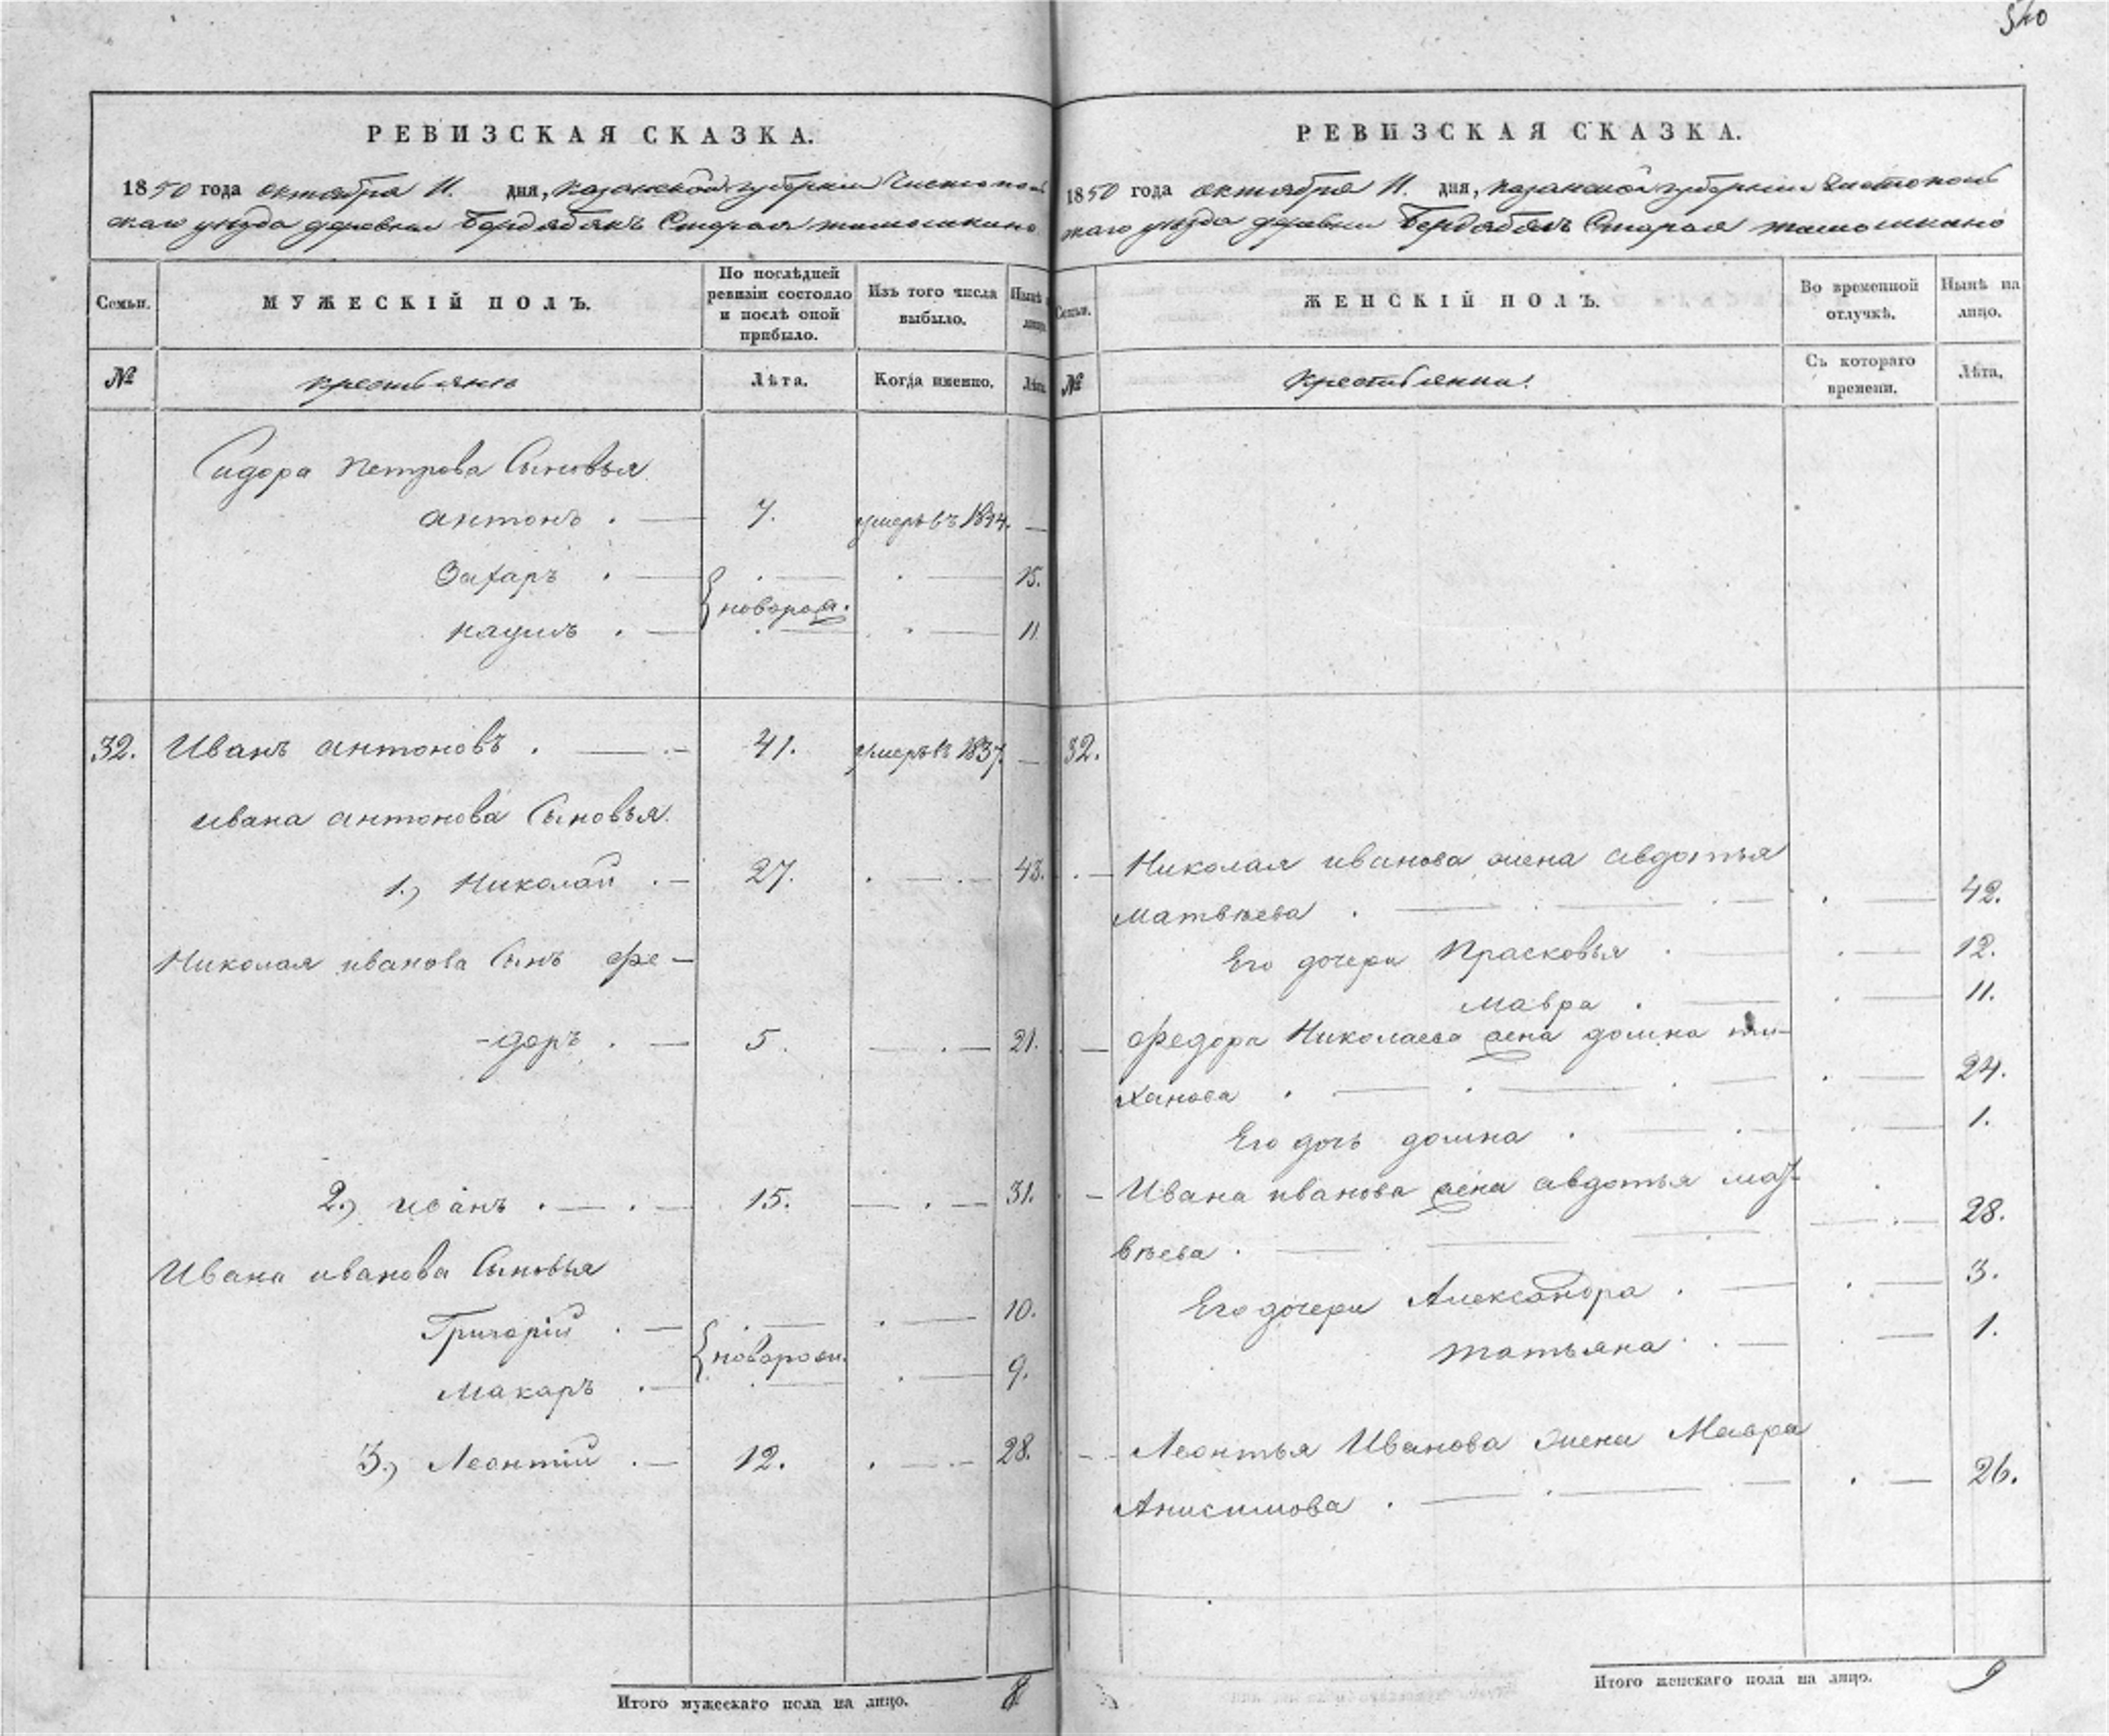 520
РЕВИЗСКАЯ СКАЗКА.
1850 года октября 11. дня, Казанской губернии Чистополь
скаго уезда деревни Бердебякъ Старая тимошкино
Семьи.
МУЖЕСКІЙ ПОЛЪ.
По послѣдней ревизіи состояло и послѣ оной прибыло.
Изъ того числа выбыло.
Нынѣ на лицо.
№
крестьяне
Лѣта.
Когда именно.
Лѣта.
Сидора Петрова Сыновья
антонъ . — 7. умеръ въ 1844. —
Захаръ . — . — . — 15.
новорож.
наумъ . — . — . — 11.
32. Иванъ антоновъ . — 41. умеръ въ 1837. —
ивана антонова Сыновья.
1.) Николай . — 27. . — . — 43.
Николая иванова Сынъ Фе-
-доръ . — 5. — . — 21.
2.) иванъ . — . — 15. — . — 31.
Ивана иванова Сыновья
Григорій . — . — . — 10.
новорожд.
Макаръ . — . — . — 9.
3.) Леонтій . — 12. . — . — 28.
Итого мужескаго пола на лицо. 8
РЕВИЗСКАЯ СКАЗКА.
1850 года октября 11. дня, Казанской губерніи Чистополь
скаго уезда деревни Бердебякъ Старая тимошкино
Семьи.
ЖЕНСКІЙ ПОЛЪ.
Во временной отлучкѣ.
Нынѣ на лицо.
№
Крестьянки.
Съ котораго времени.
Лѣта.
32.
Николая иванова жена авдотья
матвѣева . — . — . — . — 42.
Его дочери Прасковья . — . — 12.
мавра . — . — 11.
Федора Николаева жена домна ти-
ханова . — . — . — . — 24.
Его дочь домна . — . — 1.
Ивана иванова жена авдотья мат-
вѣева . — . — — . — 28.
Его дочери Александра . — . — 3.
татьяна . — . — 1.
Леонтья Иванова жена Мавра
Анисимова . — . — . — . — 26.
Итого женскаго пола на лицо. 9